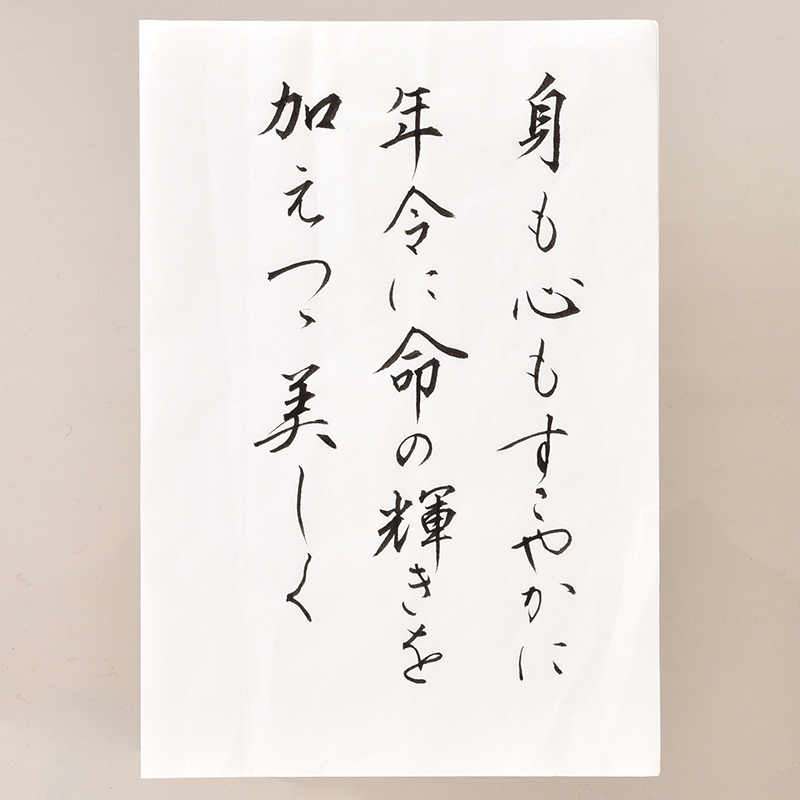 身も心もすこやかに
年令に命の輝きを
加えつゝ美しく